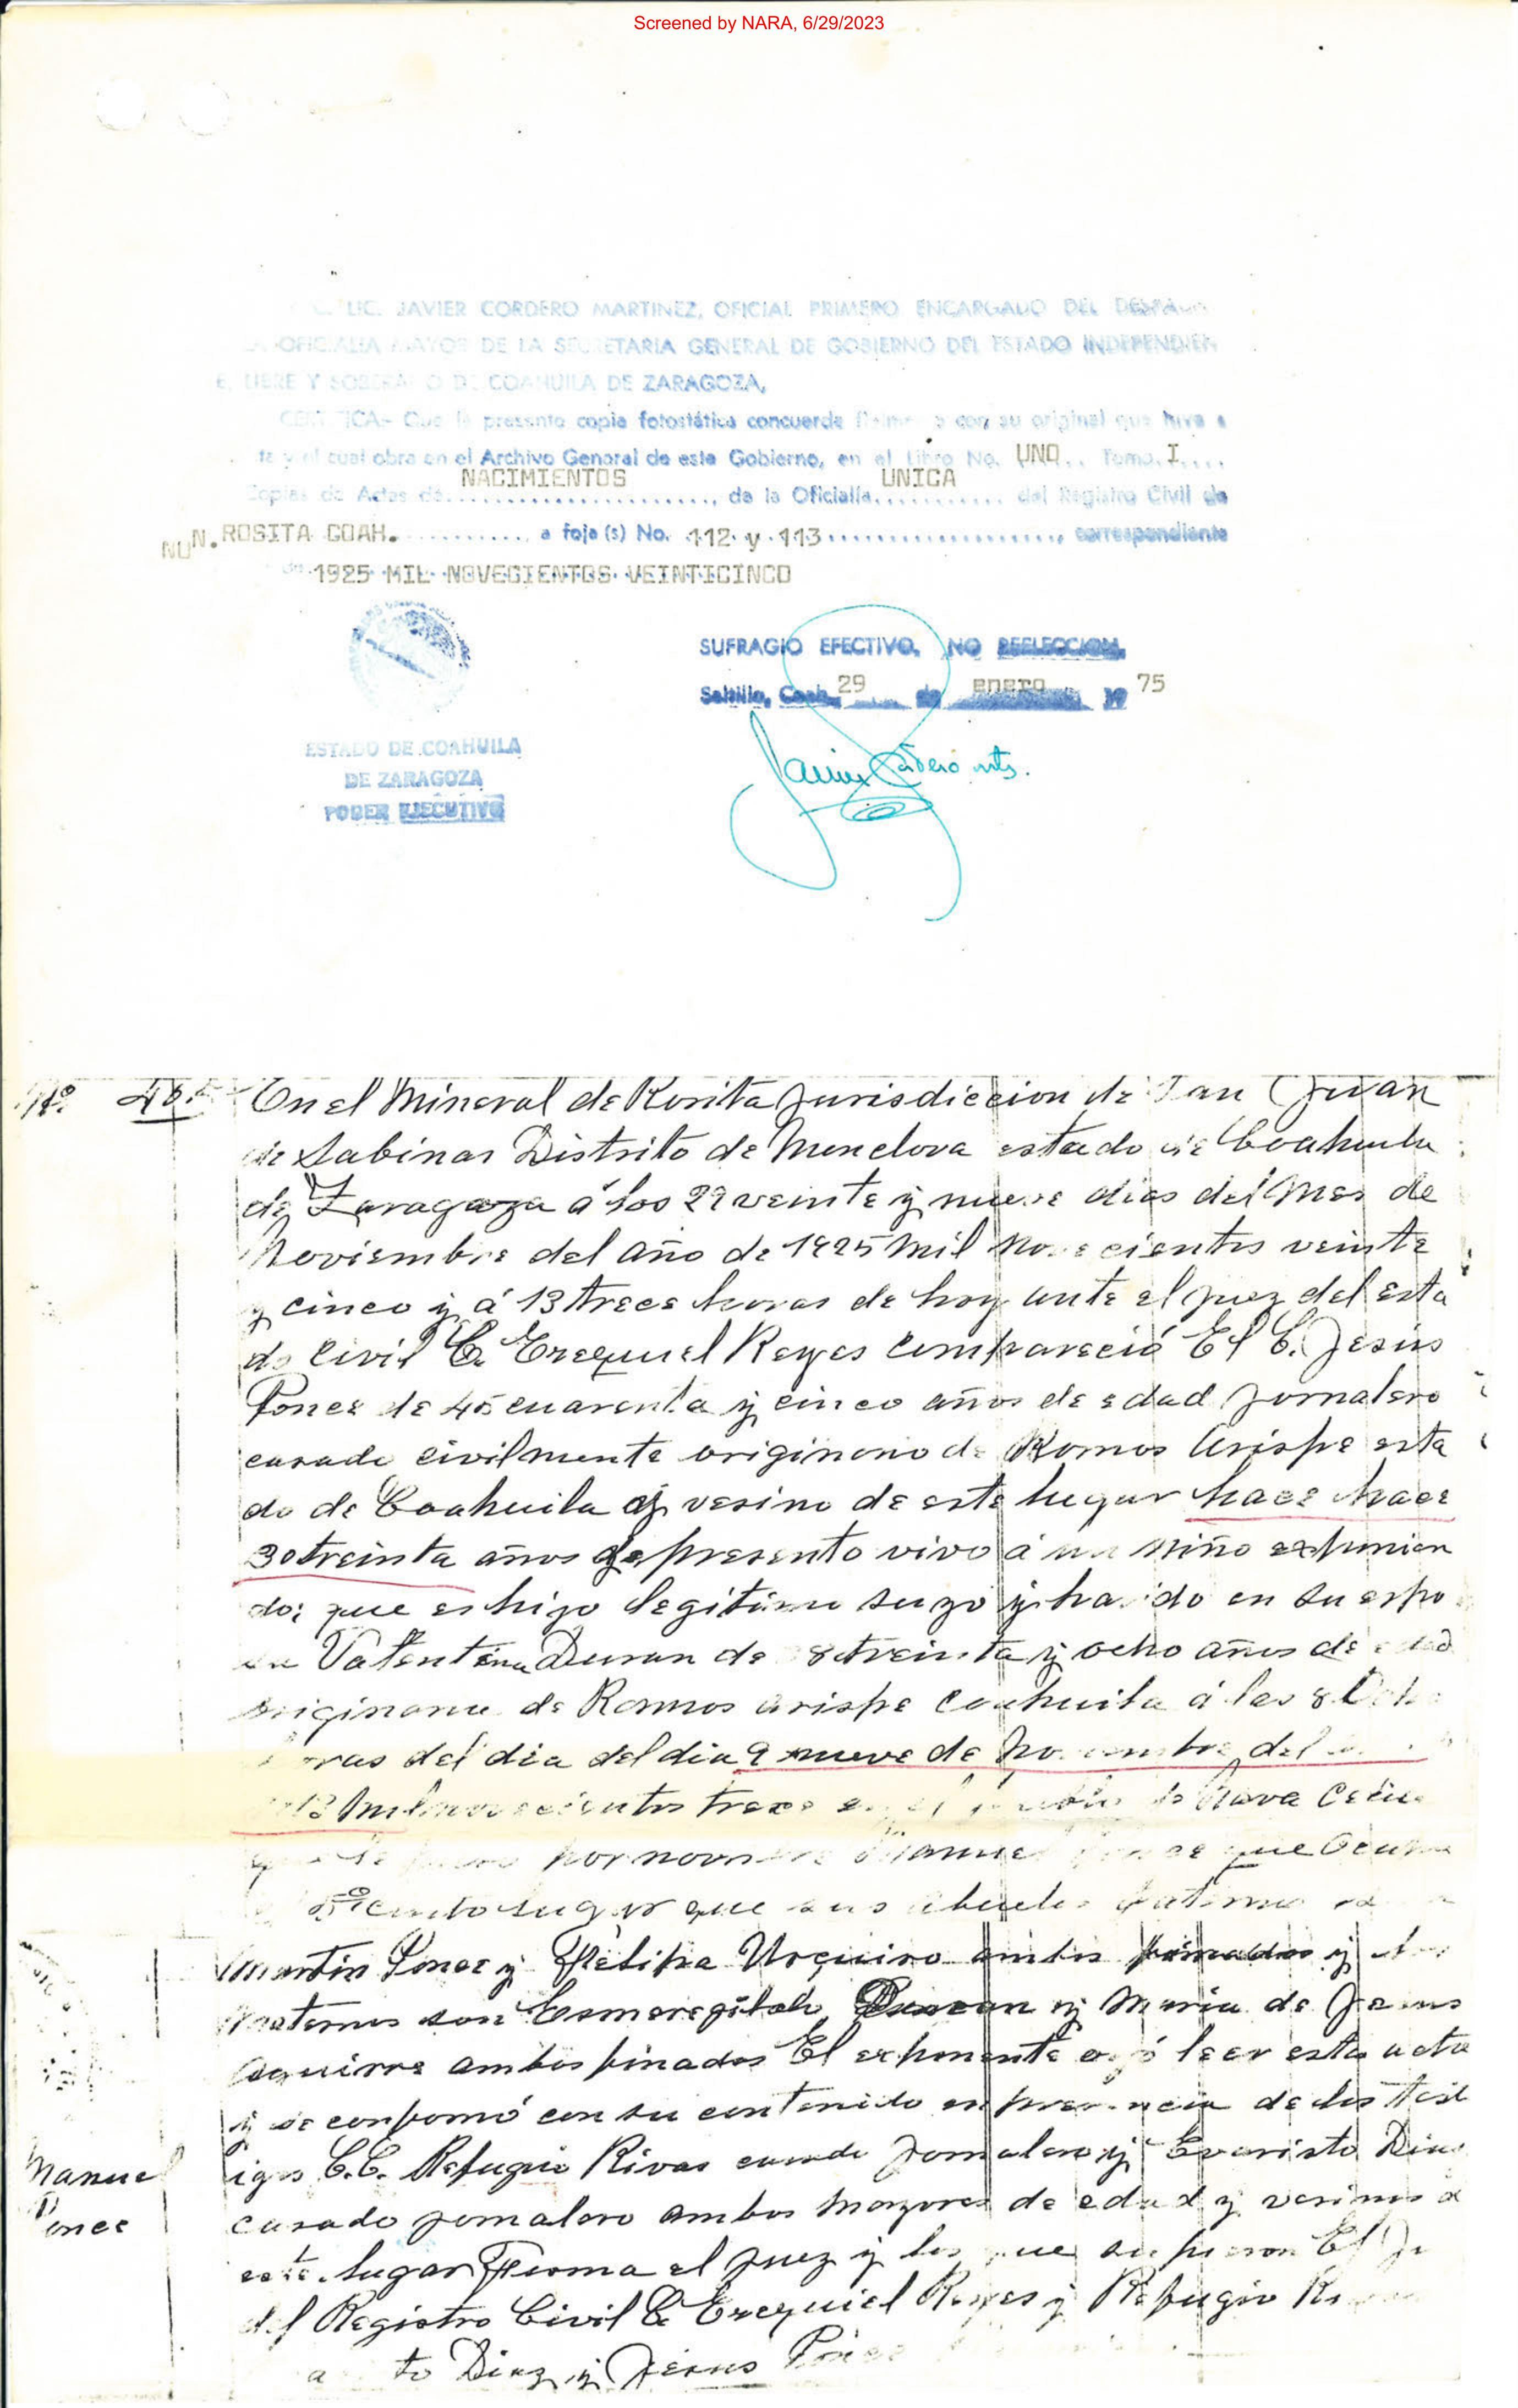 Screened by NARA, 6/29/2023
LIC. JAVIER CORDERO MARTINEZ, OFICIAL PRIMERO ENCARGADO DEL
MAYOR DE LA SECRETARIA GENERAL DE GOBIERNO DEL ESTADO INDEPENDIEN
E, LIBRE Y SOBERANO DE COAHUILA DE ZARAGOZA,
Que la presente copia fotostática concuerda con su original que tuve a
y el cual obra en el Archivo General de este Gobierno, en el Libro No. UNO.. Tomo. I....
Copias de Actas de. NACIMIENTOS , de la Oficialía. UNICA del Registro Civil de
N. ROSITA COAH. a foja (s) No. 112 y 113 , correspondiente
1925 MIL NOVECIENTOS VEINTICINCO
SUFRAGIO EFECTIVO, NO REELECCION,
Saltillo, Coah. 29 de enero 19 75
Javier Cordero mtz.
ESTADO DE COAHUILA
DE ZARAGOZA
PODER EJECUTIVO
No. En el Mineral de Rosita Jurisdiccion de San Juan
de Sabinas Distrito de Monclova estado de Coahuila
de Zaragoza á los 29 veinte y nueve dias del Mes de
Noviembre del año de 1925 Mil Novecientos veinte
y cinco y á 13 trece horas de hoy ante el Juez del esta
do Civil C. Ezequiel Reyes Compareció El C. Jesús
Ponce de 45 cuarenta y cinco años de edad Jornalero
casado civilmente originario de Ramos Arispe esta
do de Coahuila y vesino de este lugar hace hace
30 treinta años y presento vivo á un niño exponien
do; que es hijo legitimo suyo y habido en su espo
sa Valentina Duran de 38 treinta y ocho años de edad
originaria de Ramos arispe Coahuila á las 8 Ocho
horas del dia del dia 9 nueve de Noviembre del
1913 Mil novecientos trece en el pueblo de Nava
por nombre Manuel Ponce que Ocupa
lugar que sus abuelos Paternos
Martin Ponce y Felipa Urquiso ambos finados y
Maternos son Duran y Maria de Jesus
Aguirre ambos finados El exponente oyó leer esta acta
y se conformó con su contenido en presencia de los test
igos C.C. Refugio Rivas casado Jornalero y Evaristo Diaz
casado jornalero ambos mayores de edad y vesinos de
este lugar Firma el Juez y los que supieron El
del Registro Civil C. Ezequiel Reyes y Refugio
Diaz y Jesus Ponce
Manuel
Ponce